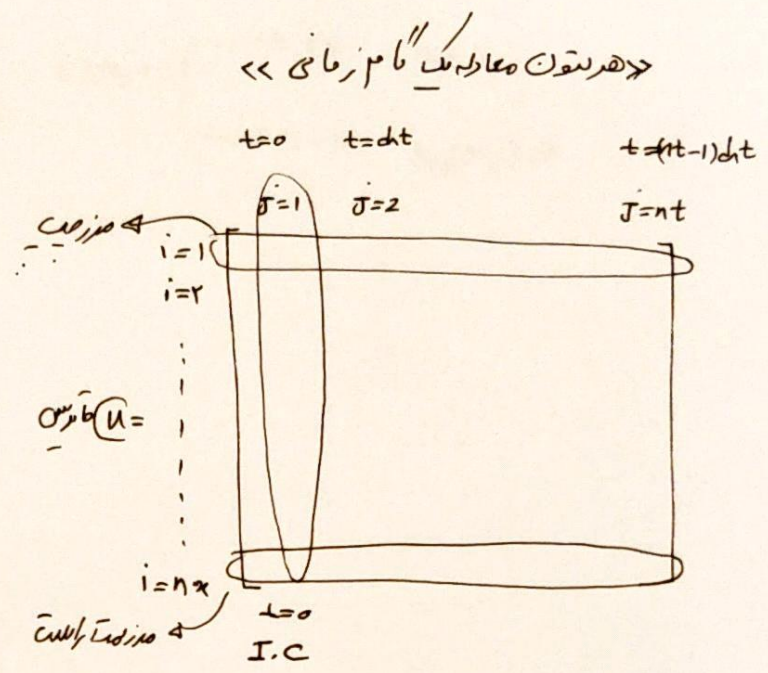 «هر ستون معادل یک گام زمانی»
t=0 t=dt t=(nt-1)dt
J=1 J=2 J=nt
مرز چپ
i=1
i=۲
ماتریس u =
i=nx
مرز سمت راست
t=0
I.C